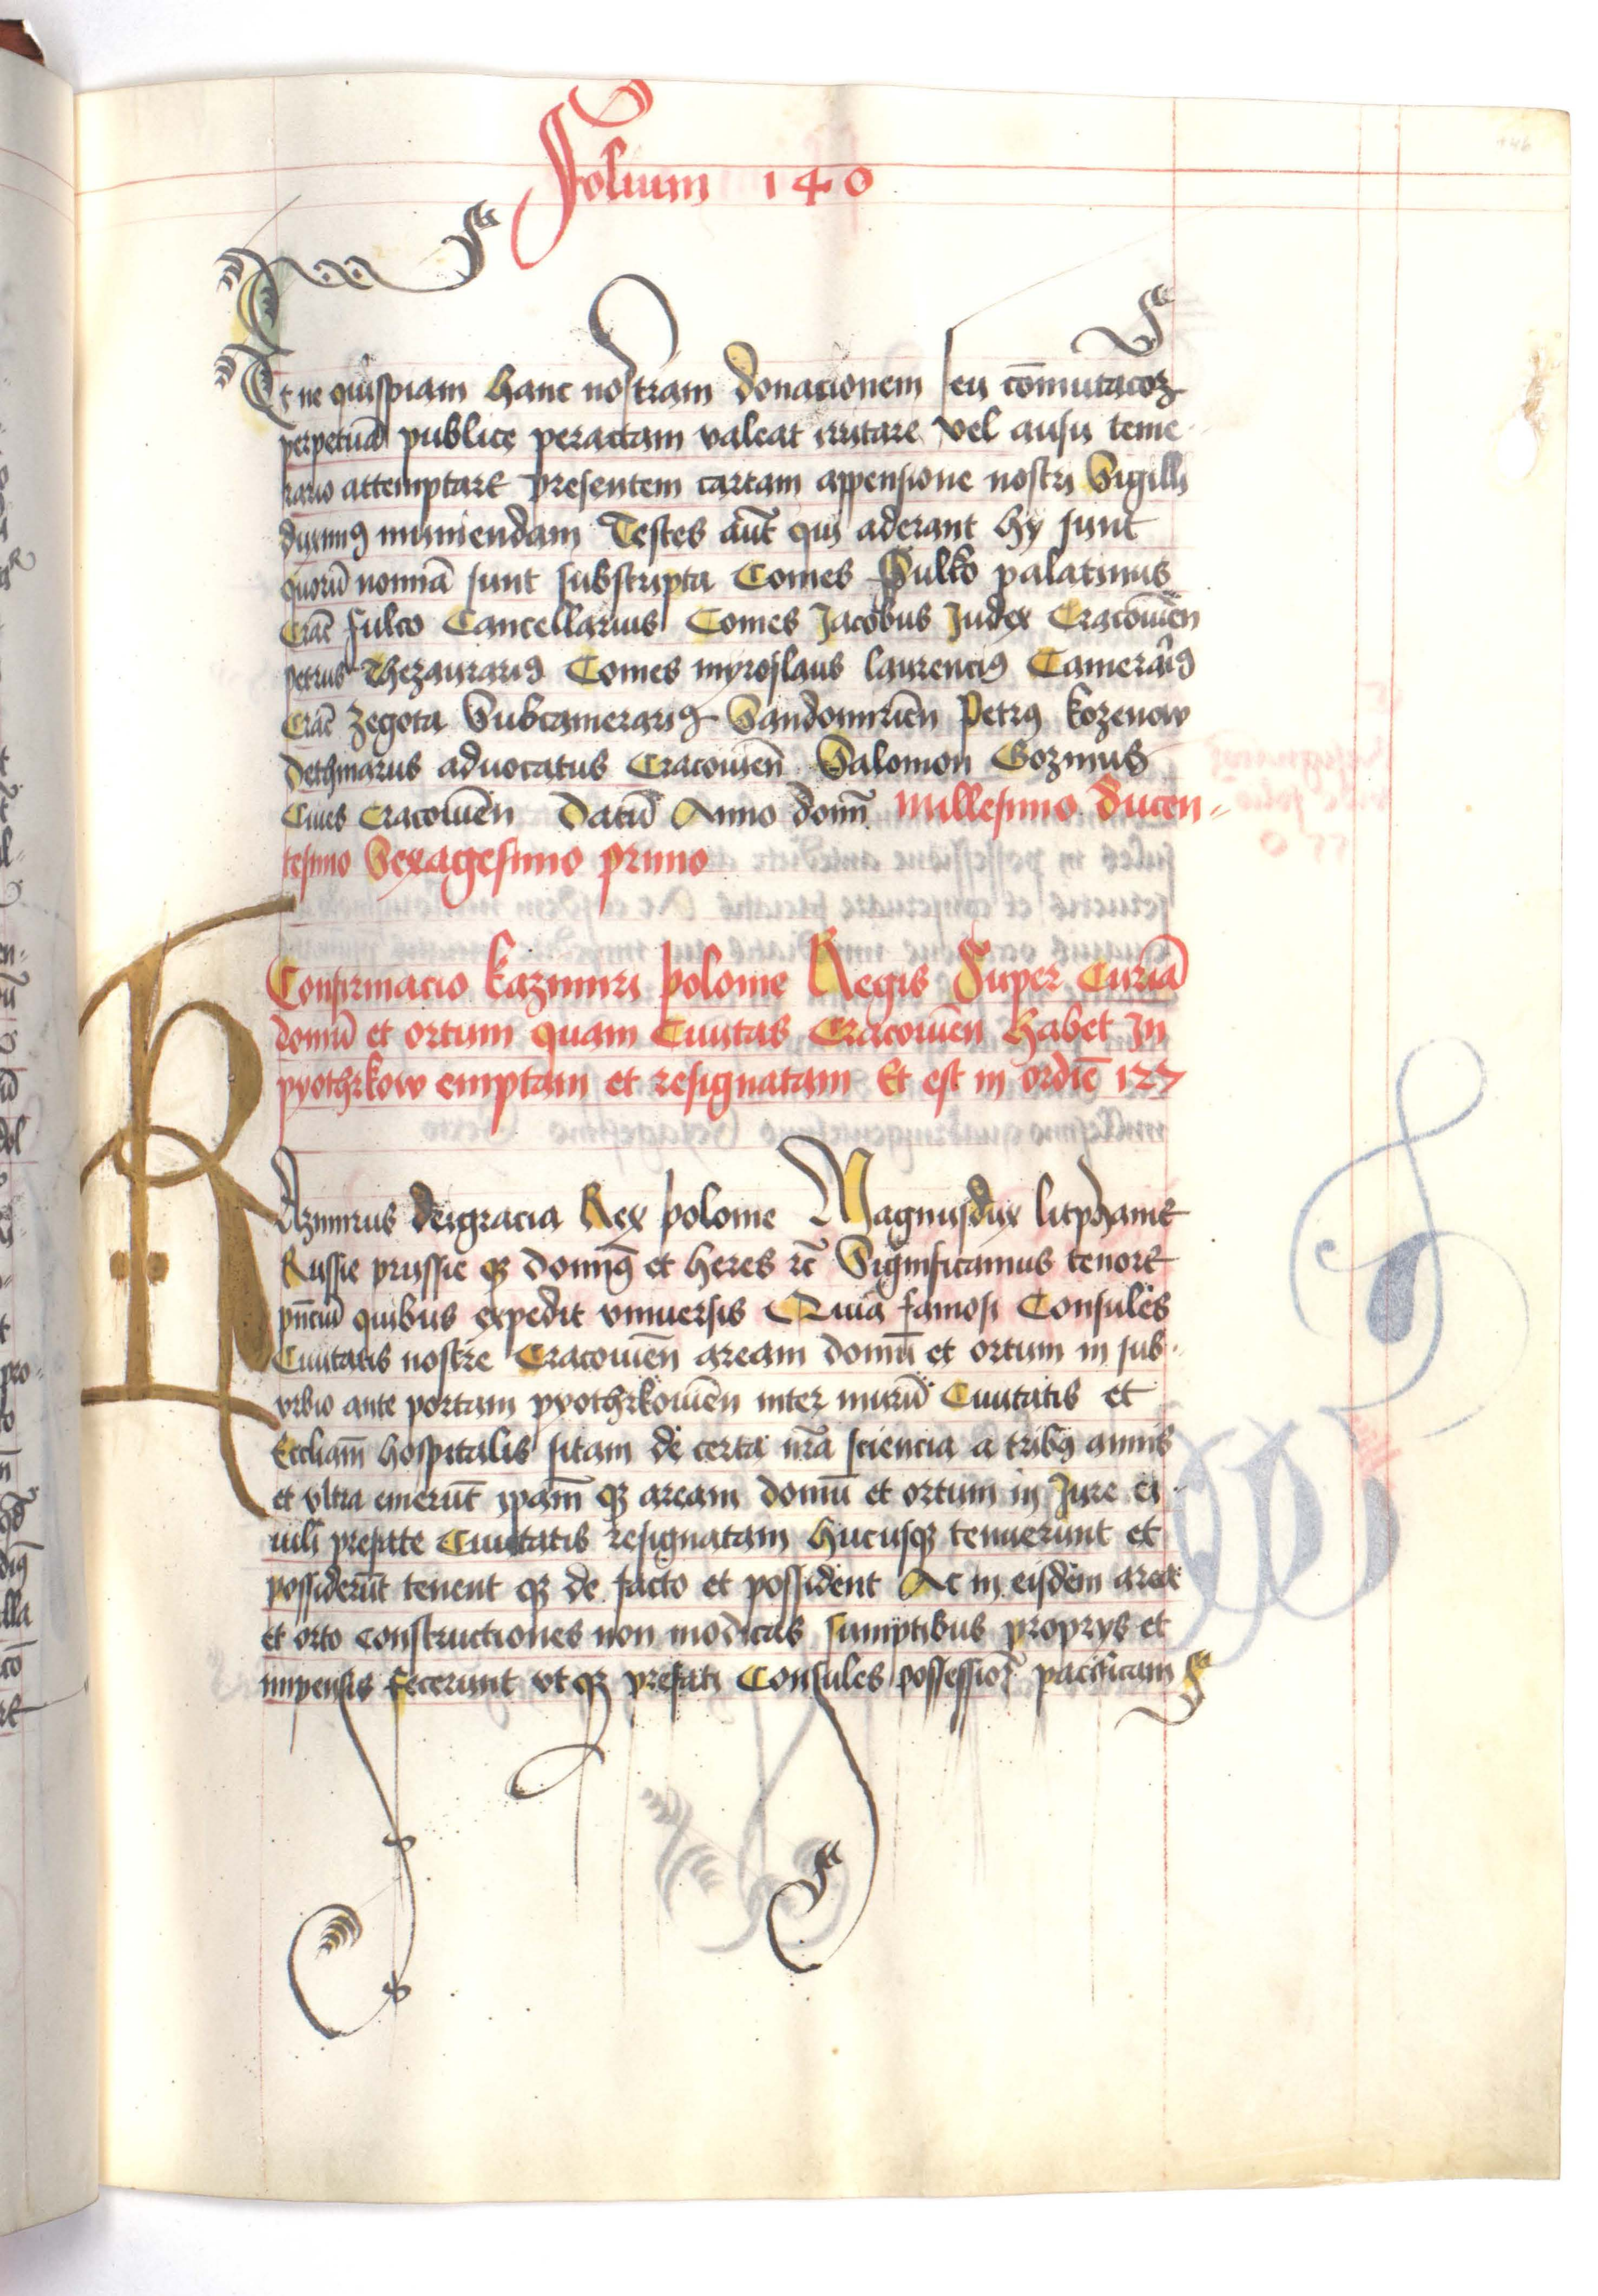 Folium 140
Et ne quispiam hanc nostram donacionem seu com̄utacōꝫ
perpetuā publice peractam valeat irritare vel ausu teme-
rario attemptare presentem cartam appensione nostri Sigilli
duximꝰ muniendam Testes aūt qui aderant hy sunt
quorū nomīa sunt subscripta Comes Sulko palatinus
Crac̄ fulco Cancellarius Comes Jacobus Judex Cracouien̄
petrus Thezaurariꝰ Comes myroslaus laurenciꝰ Camerariꝰ
Crac̄ Zegota Subcamerariꝰ Sandomirien̄ Petrꝰ kozenow
dethmarus aduocatus Cracouien̄ Salomon Gozinus
Ciues Cracouien̄ Datū Anno domī Millesimo ducen-
tesimo Sexagesimo primo
Confirmacio kazimiri polonie Regis Super Curiā
domū et ortum quam Ciuitas Cracouien̄ habet In
pyothrkow emptam et resignatam Et est in ordīe 127
Kazimirus deigracia Rex polonie Magnusdux litphanie
Russie prussie qꝫ dominꝰ et heres rc̄ Significamus tenore
pn̄ciū quibus expedit vniuersis Quia famosi Consules
Ciuitatis nostre Cracouien̄ aream domū et ortum in sub-
vrbio ante portam pyothrkouien̄ inter murū Ciuitatis et
Eccliam̄ hospitalis sitam de certa nrā sciencia a tribꝰ annis
et vltra emerūt ipam̄ qꝫ aream domū et ortum in Jure ci-
uili prefate Ciuitatis resignatam hucusqꝫ tenuerunt et
possiderūt tenent qꝫ de facto et possident Ac in eisdem area
et orto constructiones non modicas sumptibus proprys et
impensis fecerunt vt qꝫ prefati Consules possessioꝫ pacificam